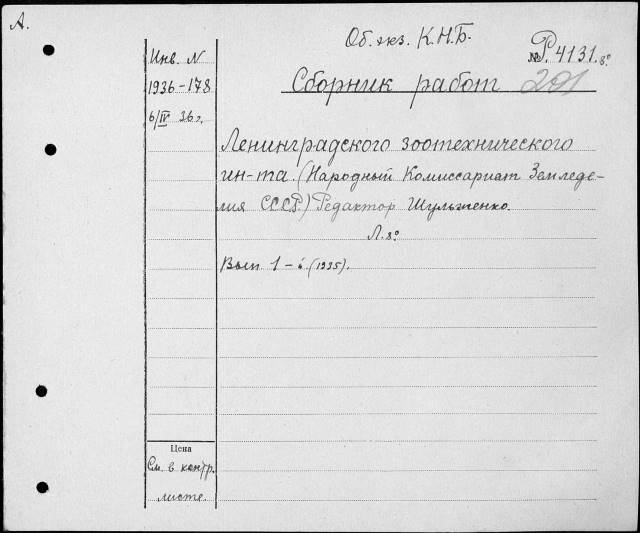 А.
Об. экз. К.Н.Б.
№ Р. 4131. 8°
Инв. N
1936-178
6/IV 36 г.
Сборник работ 201
Ленинградского зоотехнического
ин-та. (Народный Комиссариат Земледе-
лия СССР.) Редактор Шульженко.
Л. 8°
Вып. 1 - (1935).
Цена
См. в контр.
листе.